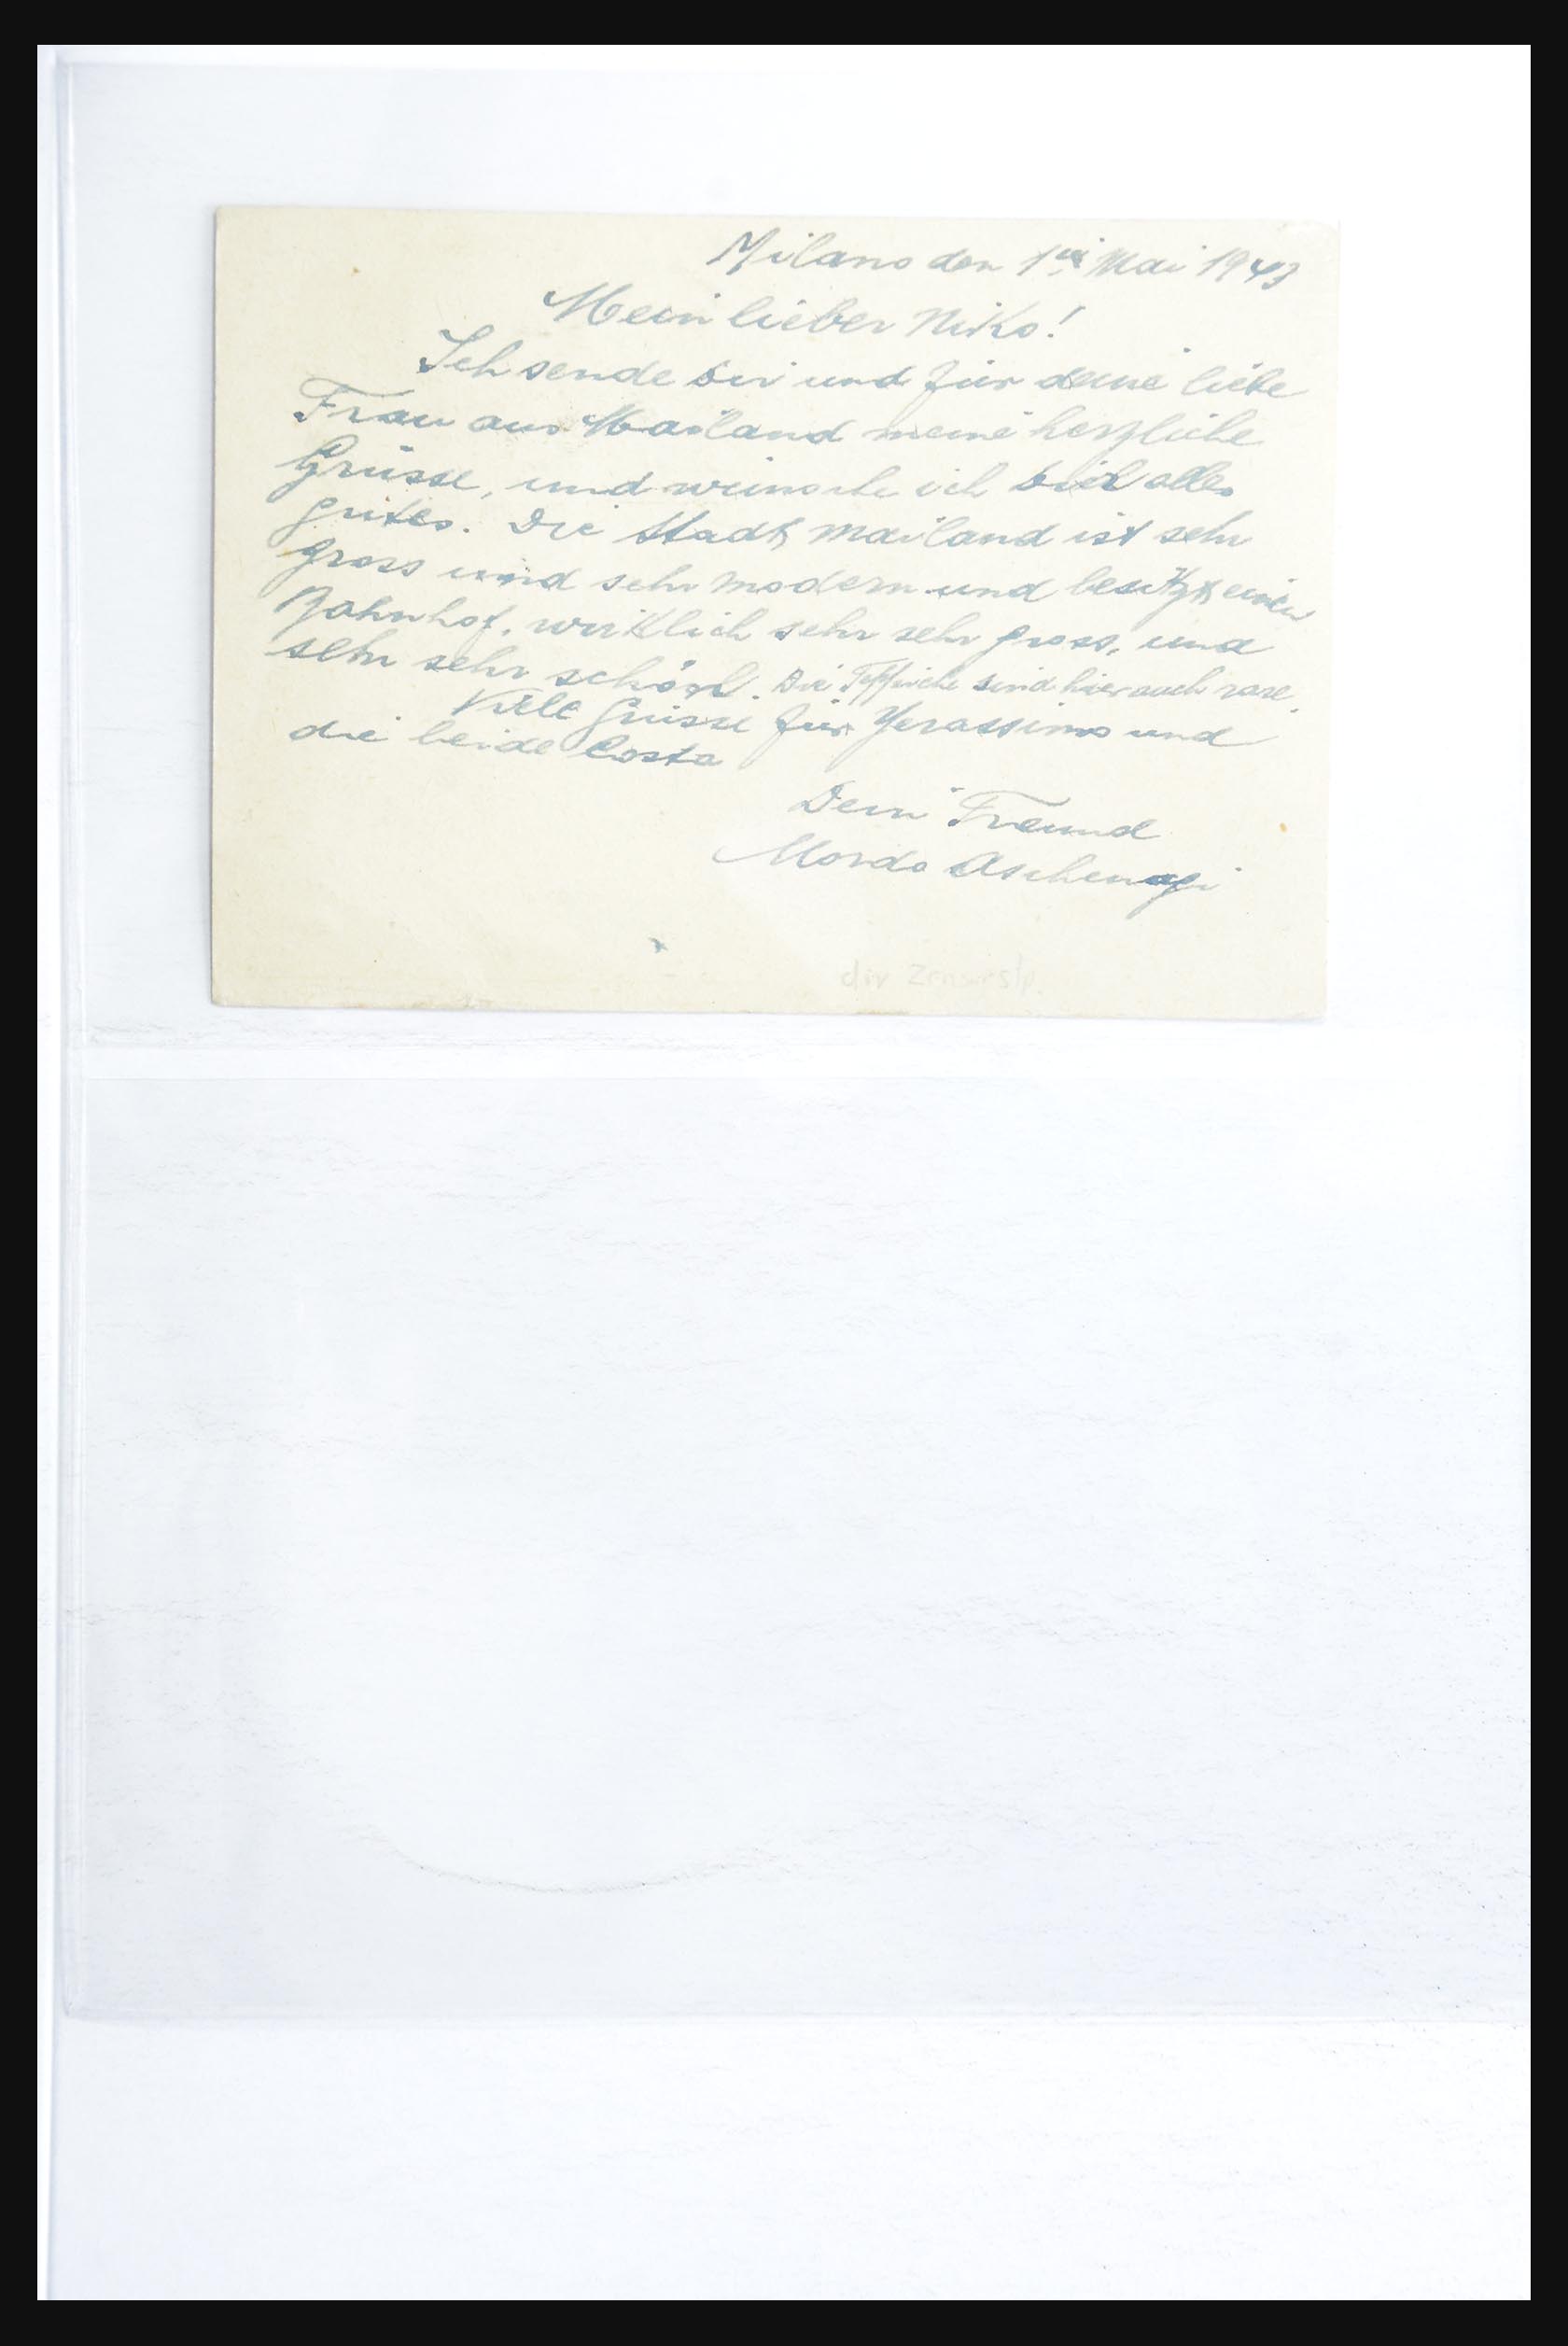 Milano den 1 Mai 1943
Mein lieber Niko!
Ich sende dir und für deine liebe
Frau aus Mailand meine herzliche
Grüsse, und wünsche ich viel alles
gutes. Die Stadt Mailand ist sehr
gross und sehr modern und besitzt einen
Bahnhof, wirklich sehr sehr gross, und
sehr sehr schön. Die Teppiche sind hier auch rare.
Viele Grüsse für Yerassimo und
die beide Costa
Dein Freund
Mordo
div Zensurstp.